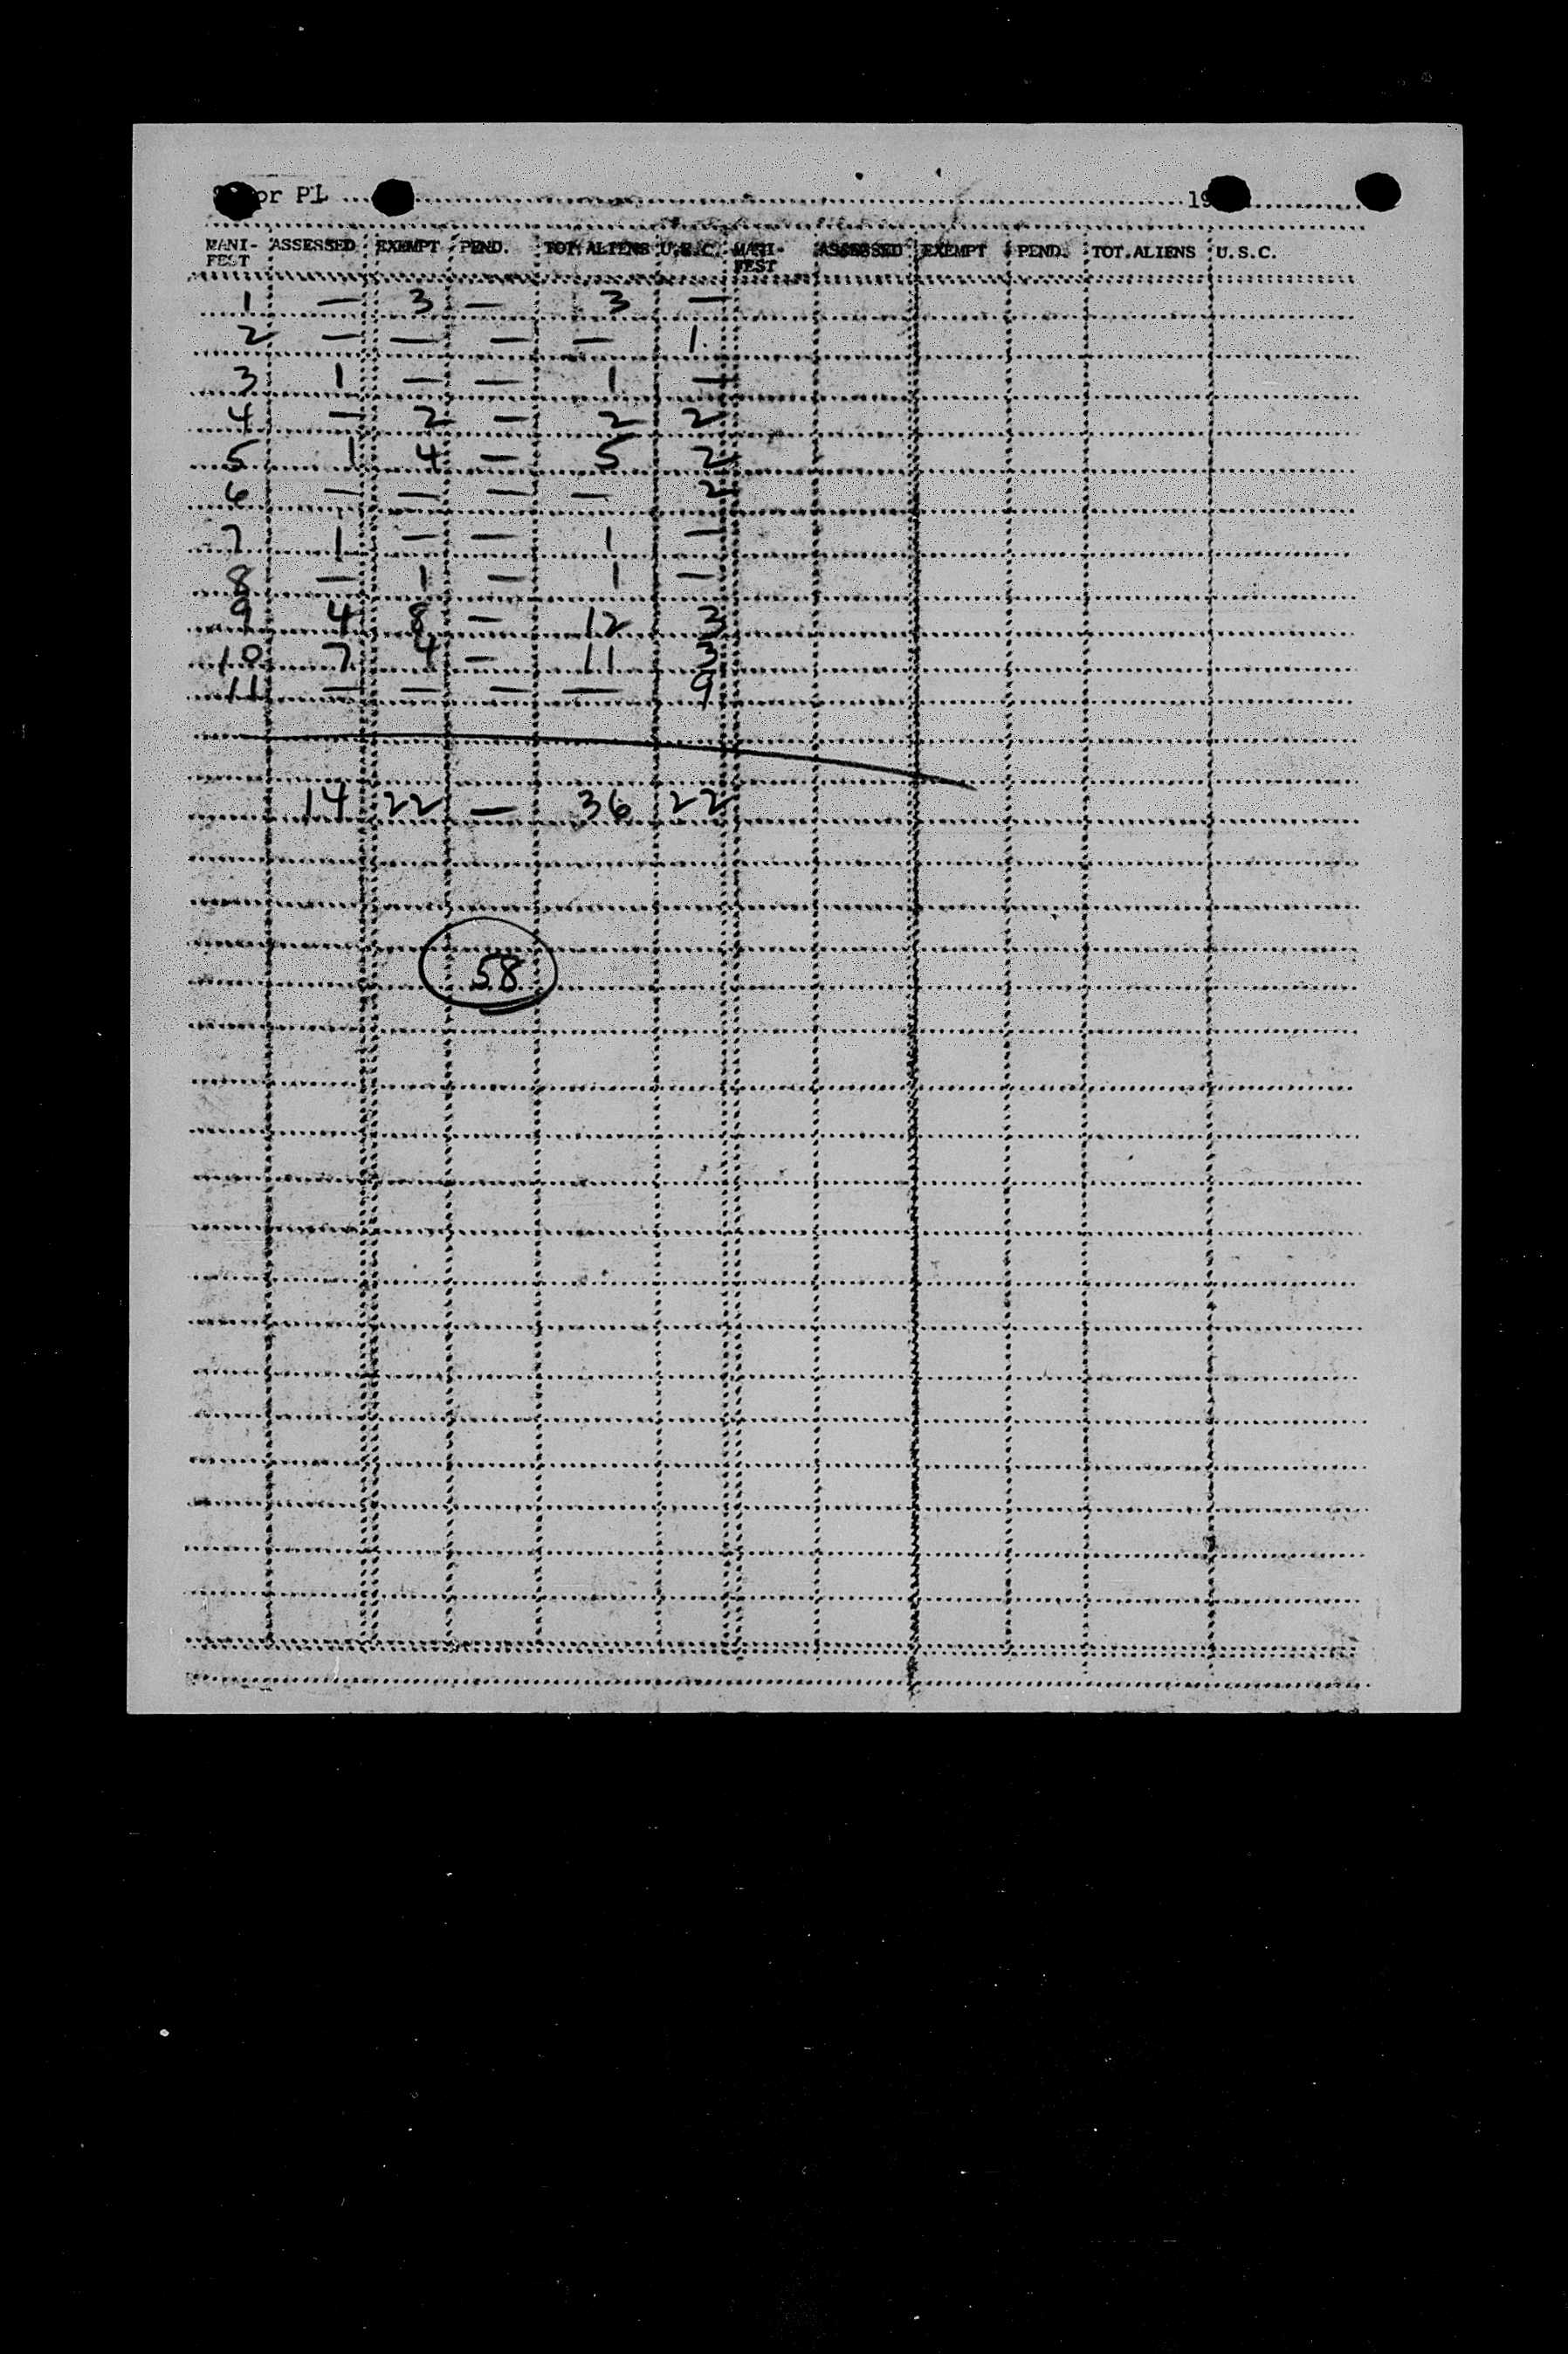 or PL 19
MANI-FEST ASSESSED EXEMPT PEND. TOT. ALIENS U.S.C. MANI-FEST ASSESSED EXEMPT PEND. TOT. ALIENS U.S.C.
1 — 3 — 3 —
2 — — — — 1
3 1 — — 1 —
4 — 2 — 2 2
5 1 4 — 5 2
6 — — — — 2
7 1 — — 1 —
8 — 1 — 1 —
9 4 8 — 12 3
10 7 4 — 11 3
11 — — — — 9
14 22 — 36 22
58